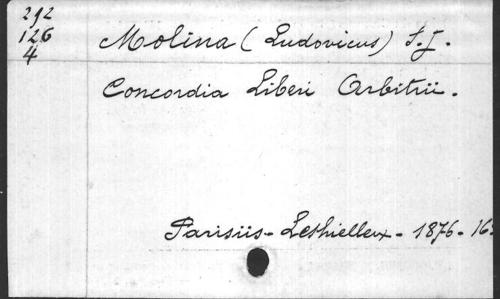 292
126
4
Molina (Ludovicus) S.J.
Concordia Liberi Arbitrii.
Parisiis - Lethielleux - 1876 - 16